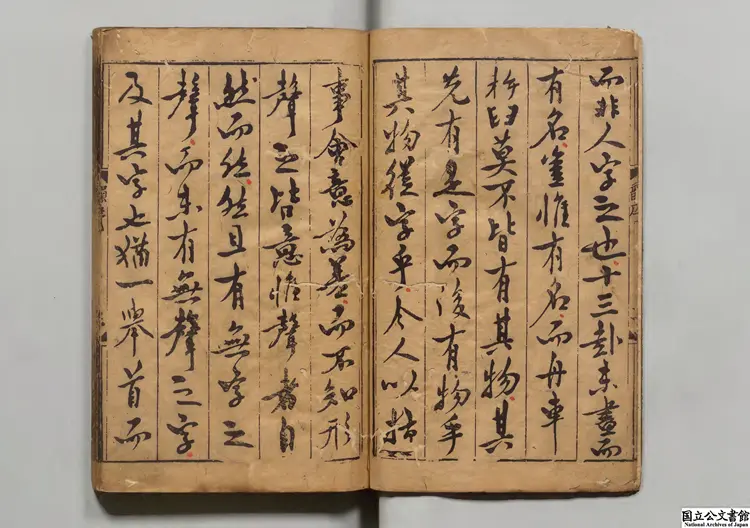 而非人字之也十三卦未畫而
有名豈惟有名而舟車
杵臼莫不皆有其物其
先有是字而後有物乎
其物從字乎今人以指
事會意為善而不知形
聲之皆意惟聲者自
然而然然且有無字之
聲而未有無聲之字
及其字也猶一舉首而
国立公文書館
National Archives of Japan